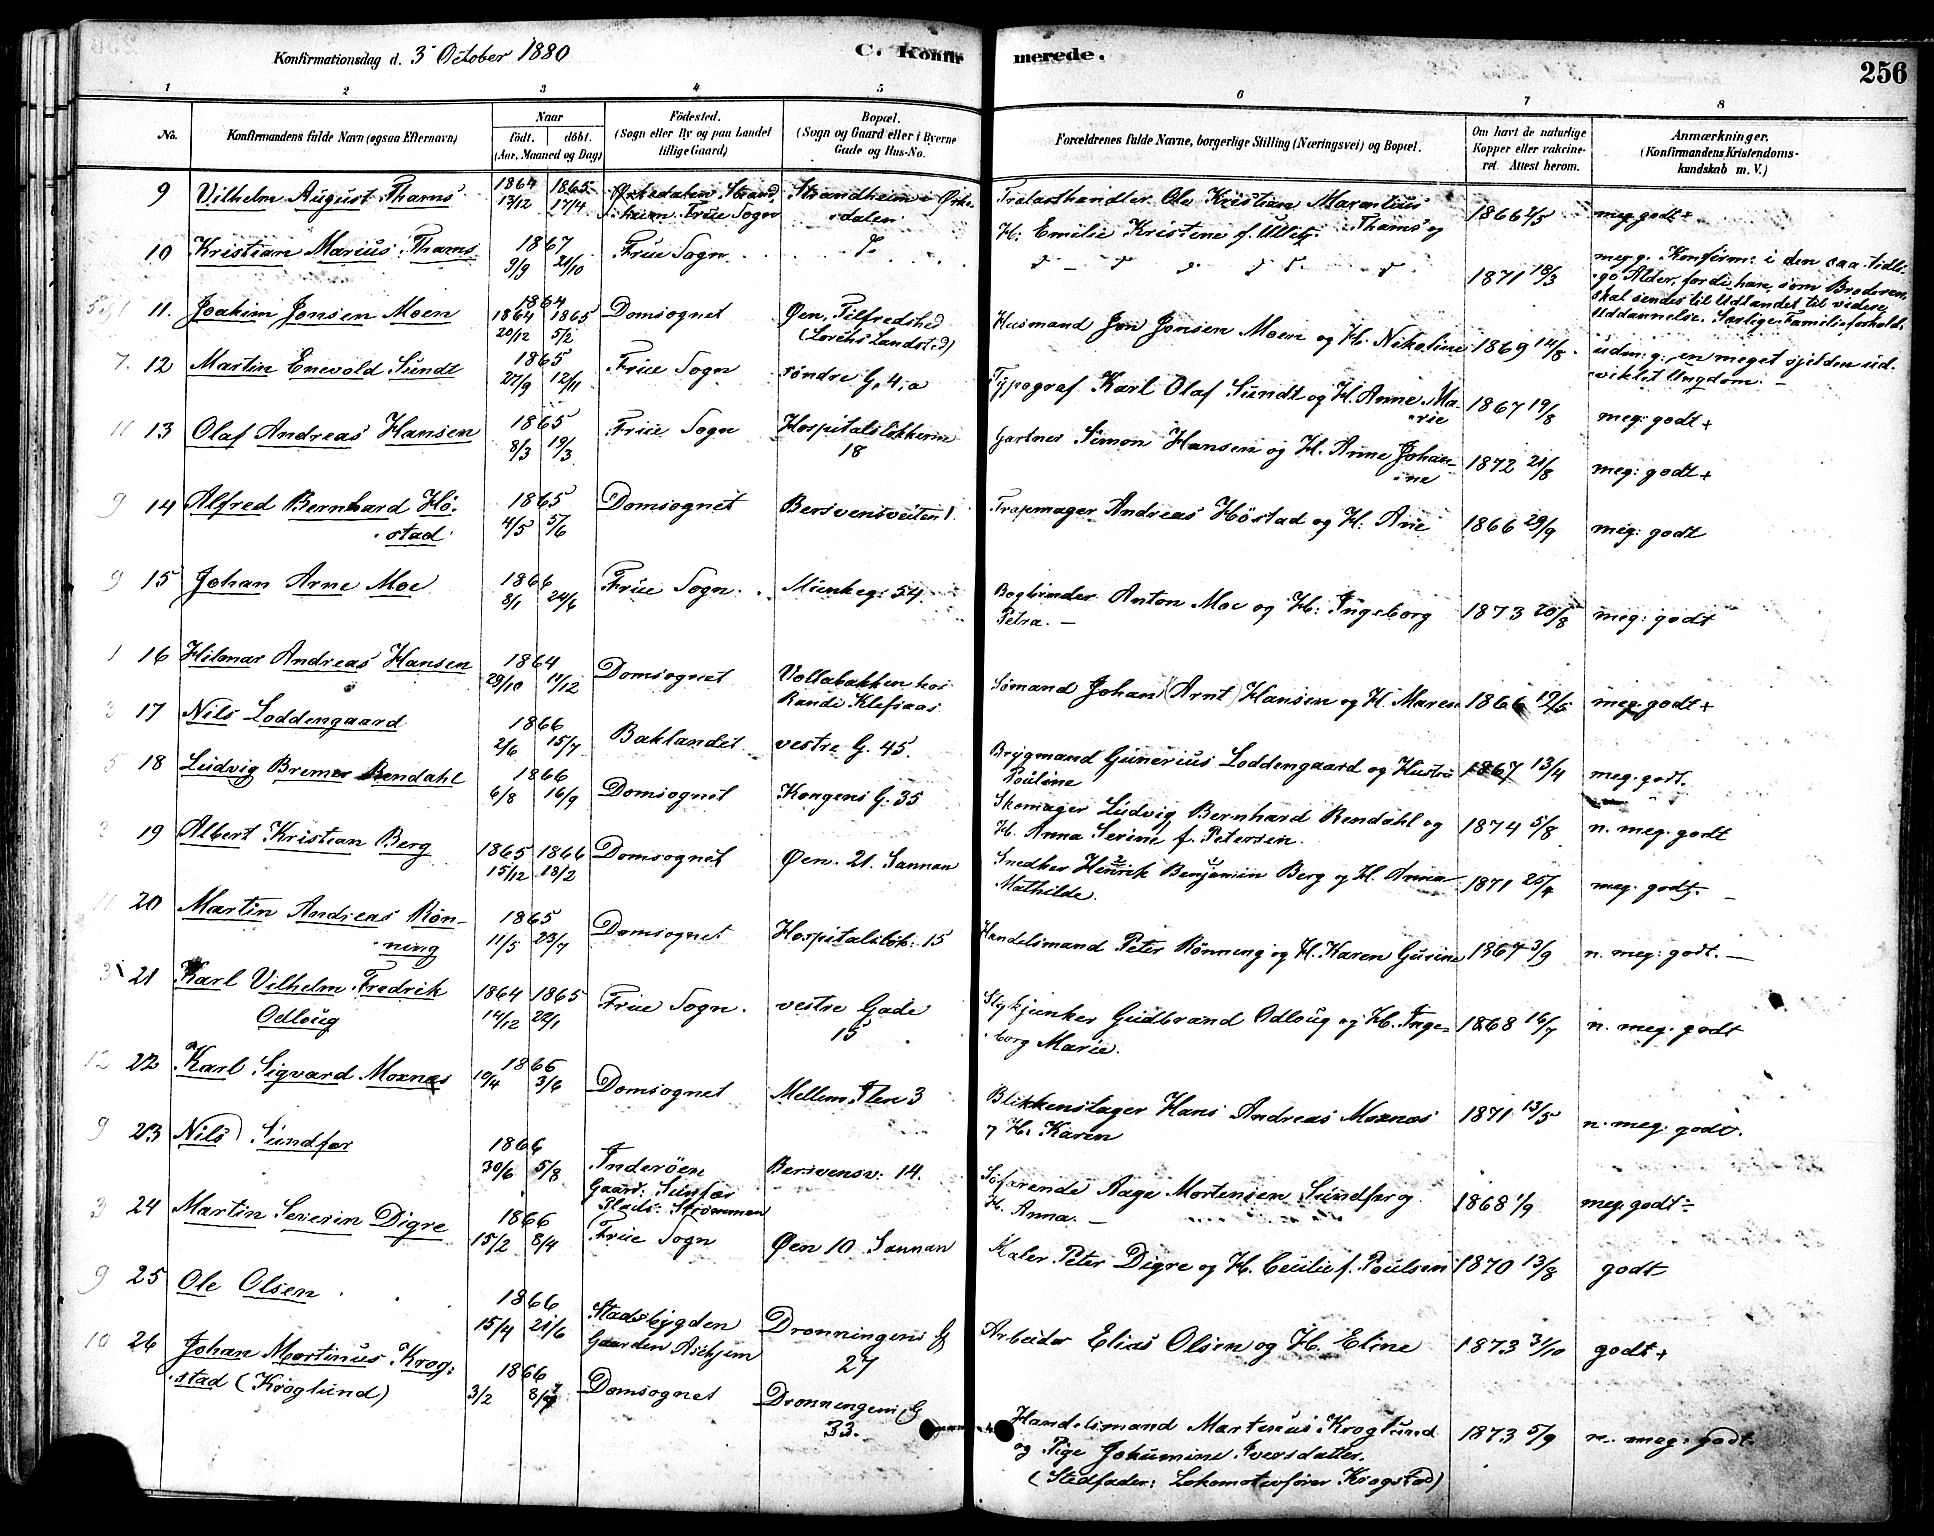 Konfirmationsdag d. 3 October 1880
C. Konfirmerede.
256
1 2 3 4 5 6 7 8
No.
Konfirmandens fulde Navn (ogsaa Efternavn)
Naar
födt. döbt.
(Aar, Maaned og Dag)
Födested.
(Sogn eller By og paa Landet
tillige Gaard)
Bopæl.
(Sogn og Gaard eller i Byerne
Gade og Hus-No.
Forældrenes fulde Navne, borgerlige Stilling (Næringsvei) og Bopæl.
Om havt de naturlige
Kopper eller vakcine-
ret Attest herom.
Anmærkninger.
(Konfirmandens Kristendoms-
kundskab m. V.)
9 Vilhelm August Thams 1864 13/12 1865 17/4 Frue Sogn Strandheim i Orke-
dalen Trælasthandler Ole Kristian Marentius Thams og
H. Emilie Kristine f. 1866 2/5 meg godt +
10 Kristian Marius Thams 1867 9/9 21/10 Frue Sogn 1871 18/3 meg. g. Konfirm: i den saa tidli-
ge Alder, fordi han, som Broderen,
skal sendes til Udlandet til videre
Uddannelse. Særlige Familieforhold.
11. Joakim Jonsen Moen 1864 1864 20/12 1865 5/2 Domsognet Øen, Tilfredshed
(Lorchs Landsted) Husmand Jon Jonsen Moen og H. Nikoline 1869 14/8 uden: g: en meget sjelden ud-
viklet Ungdom. -
7. 12 Martin Enevold Sundt 1865 27/9 12/11 Frue Sogn söndre G, 4, a Typograf Karl Olaf Sundt og H. Anne Ma-
rie 1867 19/8 meg: godt +
11 13 Olaf Andreas Hansen 1865 8/3 19/3 Frue Sogn Hospitalslökkerne
18 Gartner Simon Hansen og H. Anne Johan-
ine 1872 21/8 meg: godt +
9 14 Alfred Bernhard Hö-
stad 1865 4/5 5/6 Domsognet Bersvensveiten 1. Andreas Höstad og H. Ane 1866 29/9 meg: godt
9 15 Johan Arne Moe 1866 8/1 24/6 Frue Sogn. Munkeg: 54. Bogbinder Anton Moe og H: Ingeborg
Petra. - 1873 20/8 meg: godt
1 16 Hilmar Andreas Hansen 1864 29/10 11/12 Domsognet Vollabakken hos
Randi Klefsaas Sömand Johan (Arnt) Hansen og H. Maren 1866 19/5 meg. godt +
3 17 Nils Loddengaard 1866 2/6 15/7 Baklandet vestre G. 45. Brygmand Gunerius Loddengaard og Hustru
Pouline 1867 13/4 meg. godt.
5 18 Ludvig Bremer Rendahl 1866 6/8 16/9 Domsognet Kongens G. 35 Skomager Ludvig Bernhard Rendahl og
H. Anna Serine f. Petersen. 1874 5/8 n. meg. godt
2 19 Albert Kristian Berg 1865 15/12 1866 18/2 Domsognet Øen. 21. Sannan Snedker Henrik Benjamin Berg og H. Anna
Mathilde. 1871 25/4 meg. godt. -
11 20 Martin Andreas Rön-
ning 1865 11/5 23/7 Domsognet Hospitalslök: 15 Handelsmand Peter Rönning og H. Karen Gurine 1867 3/9 n. meg: godt. -
3 21 Karl Vilhelm Fredrik
Odloug 1864 14/12 1865 22/1 Frue Sogn. vestre Gade
15 Stykjunker Gudbrand Odloug og H. Inge-
borg Marie. 1868 16/7 n. meg. godt
12 22 Karl Sigvard Moxnæs 1866 10/4 3/6 Domsognet Mellem Ilen 3 Blikkenslager Hans Andreas Moxnæs
og H. Karen 1871 13/5 n. meg. godt.
9 23 Nils Sundfær 1866 30/6 5/8 Inderöen
Gaard: Sunfær
Plads: Strömmen Bersvensv. 14. Söfarende Aage Mortensen Sundfær og
H. Anna. - 1868 1/9 meg. godt -
3 24 Martin Severin Digre 1866 15/2 8/4 Frue Sogn Øen 10 Sannan Maler Peter Digre og H. Cecilie f. Poulsen 1870 13/8 godt
9 25 Ole Olsen 1866 15/4 21/6 Stadsbygden
Gaarden Askjem Dronningens G
27 Arbeider Elias Olsen og H. Eline 1873 31/10 godt +
10 26 Johan Martinus Krog-
stad (Kroglund) 1866 3/2 Domsognet Dronningens G
33. Handelsmand Martinus Kroglund
og Pige Johanmine Iversdatter.
(Stedfader: Lokomotivförer Krogstad) 1873 5/9 n. meg: godt